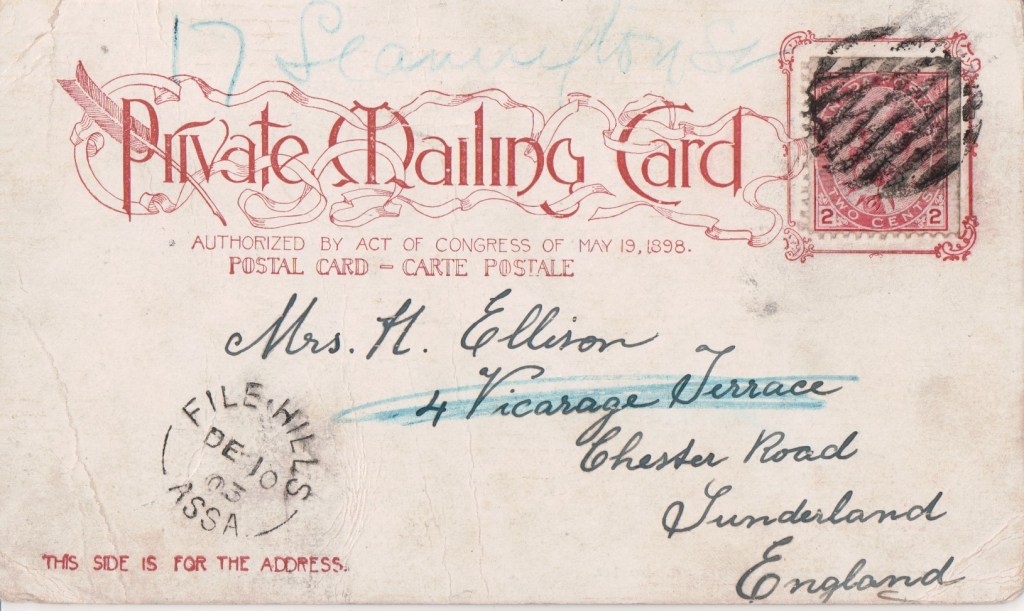 17 Leamington St
Private Mailing Card
AUTHORIZED BY ACT OF CONGRESS OF MAY 19, 1898.
POSTAL CARD – CARTE POSTALE
2 TWO CENTS 2
Mrs. H. Ellison
4 Vicarage Terrace
Chester Road
Sunderland
England
FILE HILLS
DE 10
03
ASSA
THIS SIDE IS FOR THE ADDRESS.